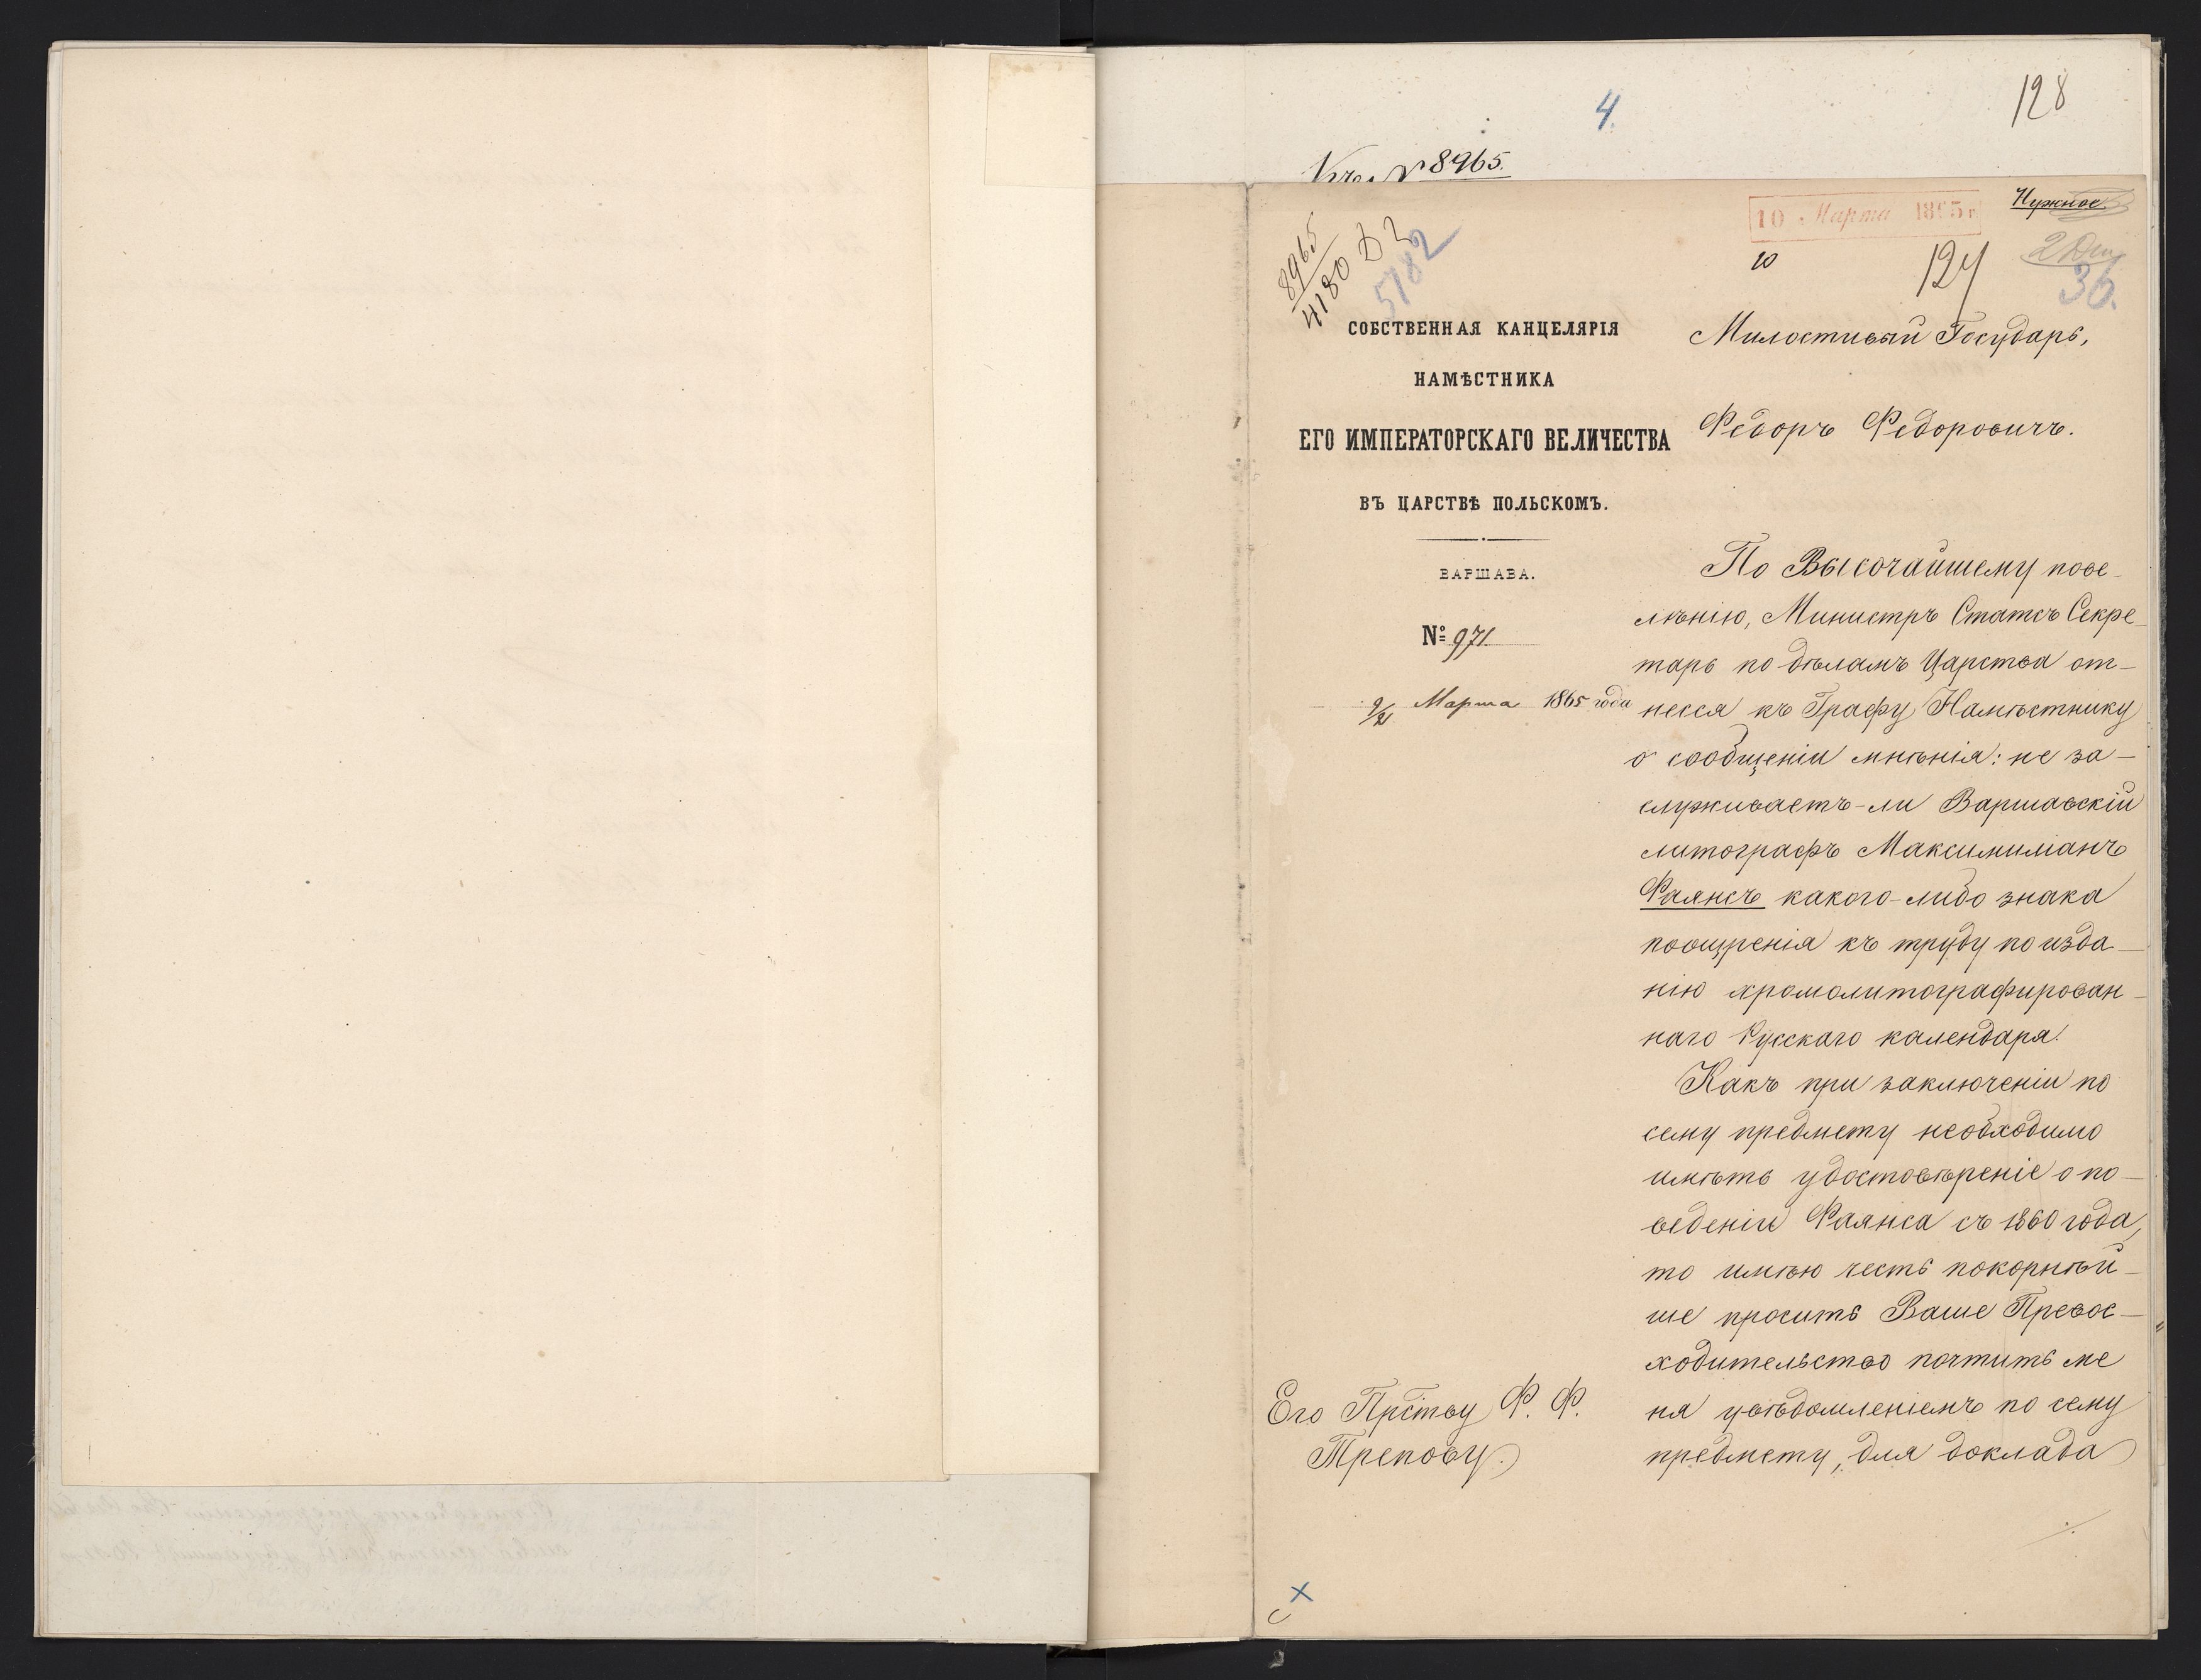 4.
128
№ 8965.
10 Марта 1865 г.
Нужное.
8965
4180 Д 2
5782
10
127
36.
СОБСТВЕННАЯ КАНЦЕЛЯРІЯ
НАМѢСТНИКА
ЕГО ИМПЕРАТОРСКАГО ВЕЛИЧЕСТВА
ВЪ ЦАРСТВѢ ПОЛЬСКОМЪ.
ВАРШАВА.
№ 971.
9/21 Марта 1865 года
Милостивый Государь,
Федоръ Федоровичъ.
По Высочайшему пове-
лѣнію, Министръ Статсъ Секре-
тарь по дѣламъ Царства от-
несся къ Графу Намѣстнику
о сообщеніи мнѣнія: не за-
служиваетъ-ли Варшавскій
литографъ Максимиліанъ
Фаянсъ какого-либо знака
поощренія къ труду по изда-
нію хромолитографирован-
наго Русскаго календаря.
Какъ при заключеніи по
сему предмету необходимо
имѣть удостовѣреніе о по-
веденіи Фаянса съ 1860 года,
то имѣю честь покорнѣй-
ше просить Ваше Превос-
ходительство почтить ме
ня увѣдомленіемъ по сему
предмету, для доклада
Его Прству Ф. Ф.
Трепову.